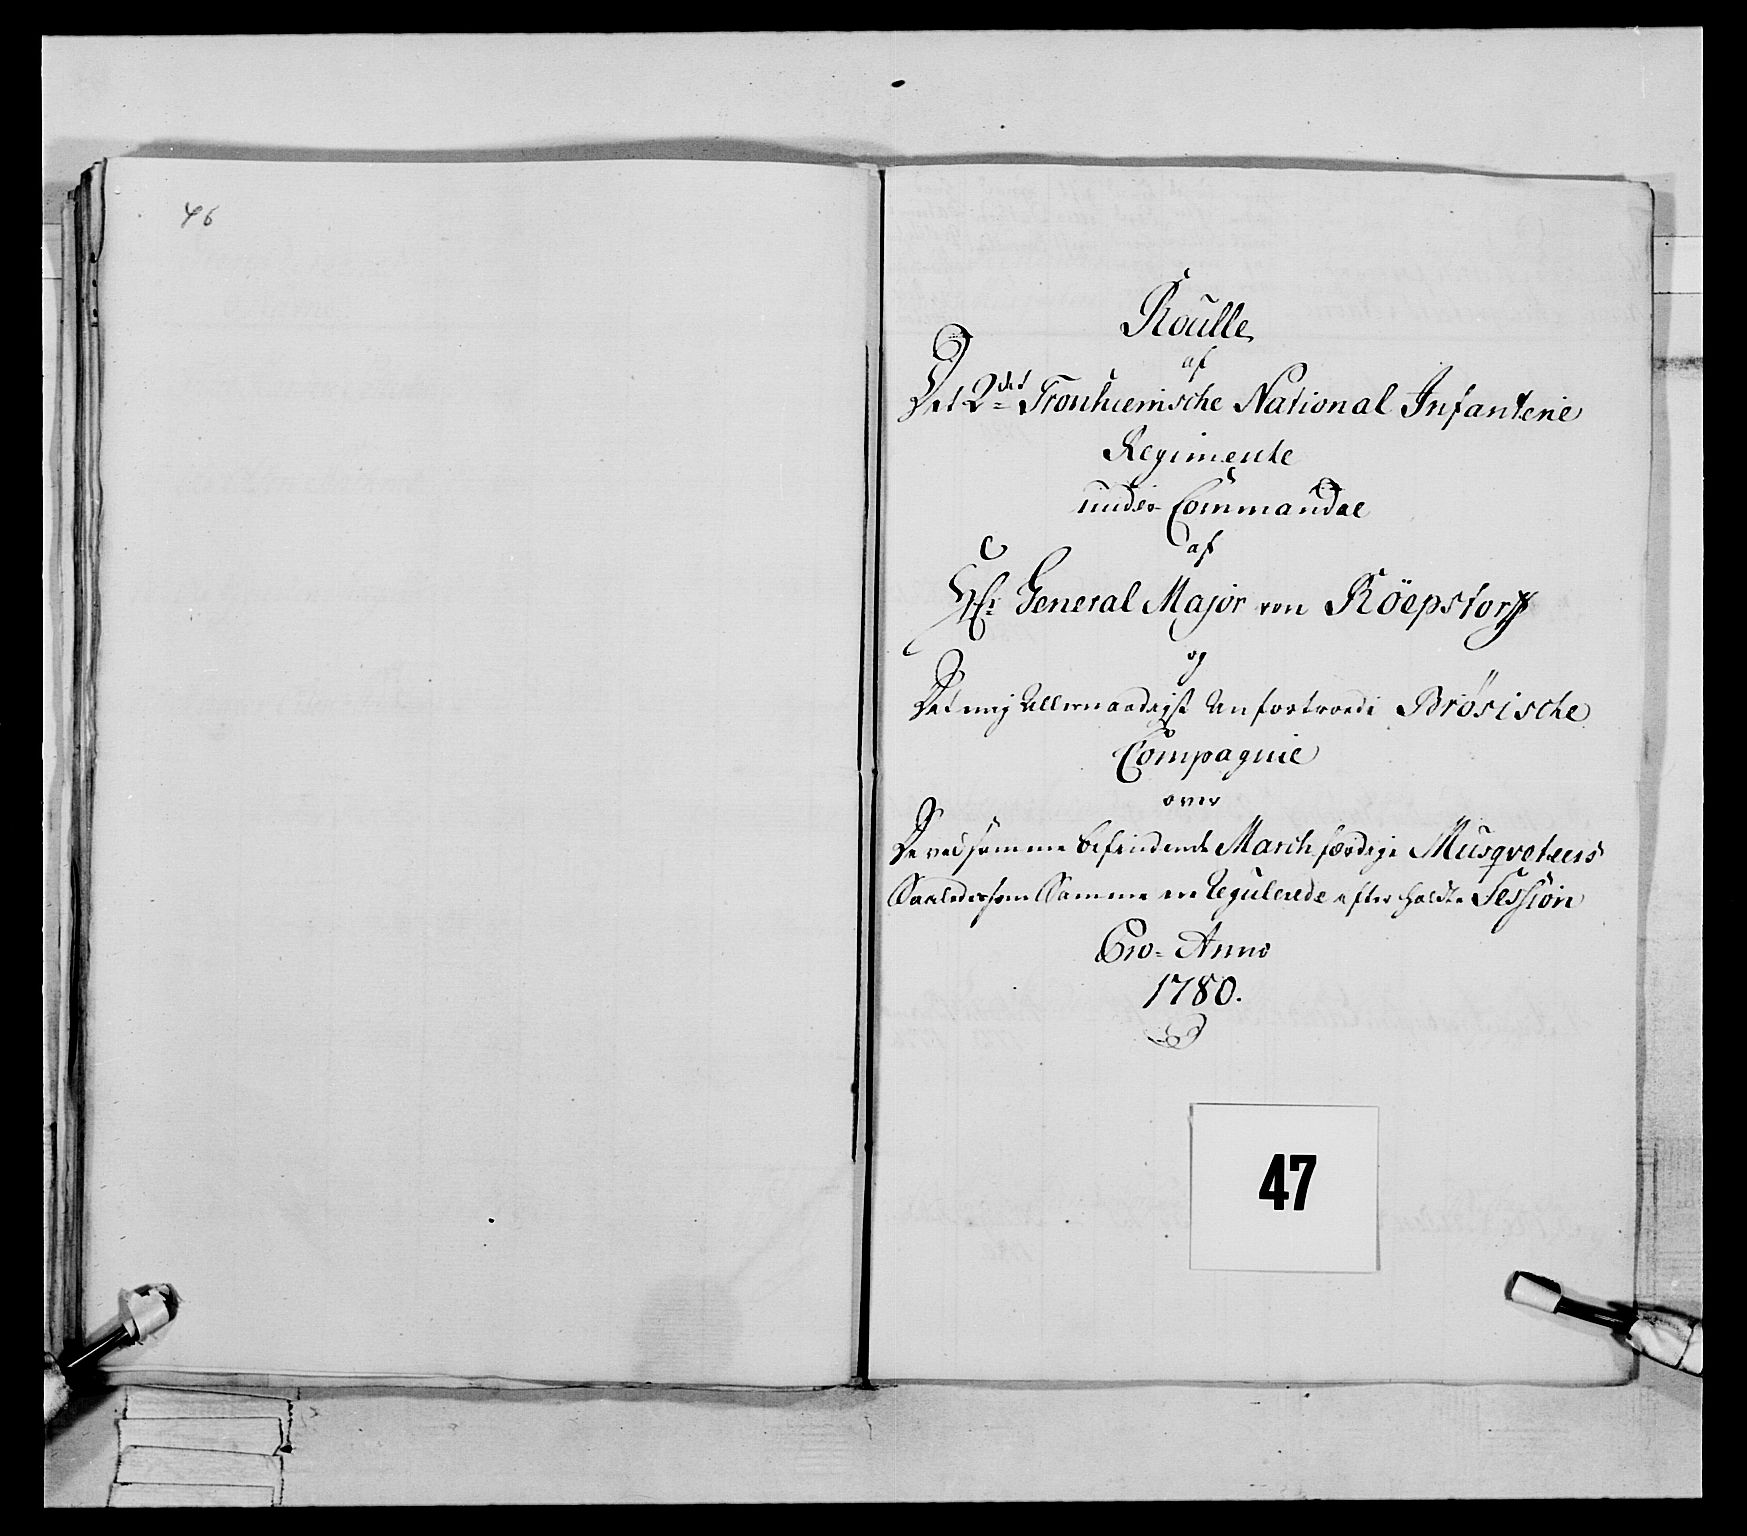 46
Roulle
af
Det 2det Tronhiemsche National Infanterie
Regimente
under Commandoe
af
Hr General Major von Röepstorff
og
Det mig Allernaadigst Anfortroede Brøsische
Compagnie
over
De ved samme befindende March færdige Musqveteers
Saaledes som Samme ere Regulerede efter holdte Session
Pro Anno
1780.
47